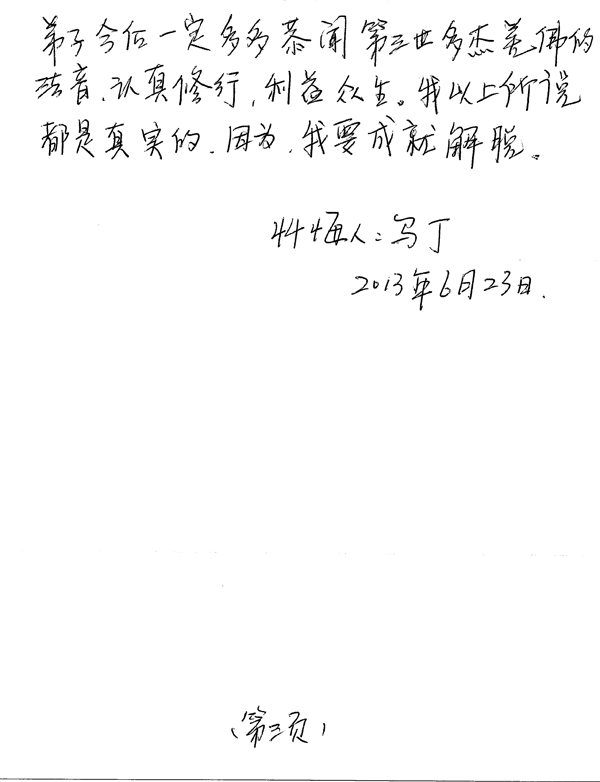 弟子今后一定多多恭闻第三世多杰羌佛的
法音、认真修行，利益众生。我以上所说
都是真实的、因为、我要成就解脱。
忏悔人：马丁
2013年6月23日.
(第三页)